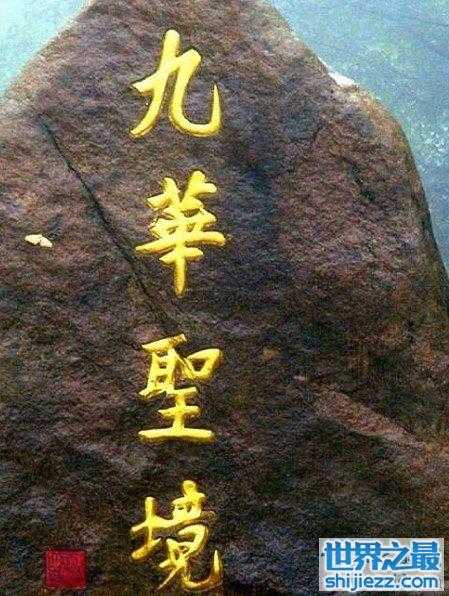 九華聖境
世界之最
shijiezz.com